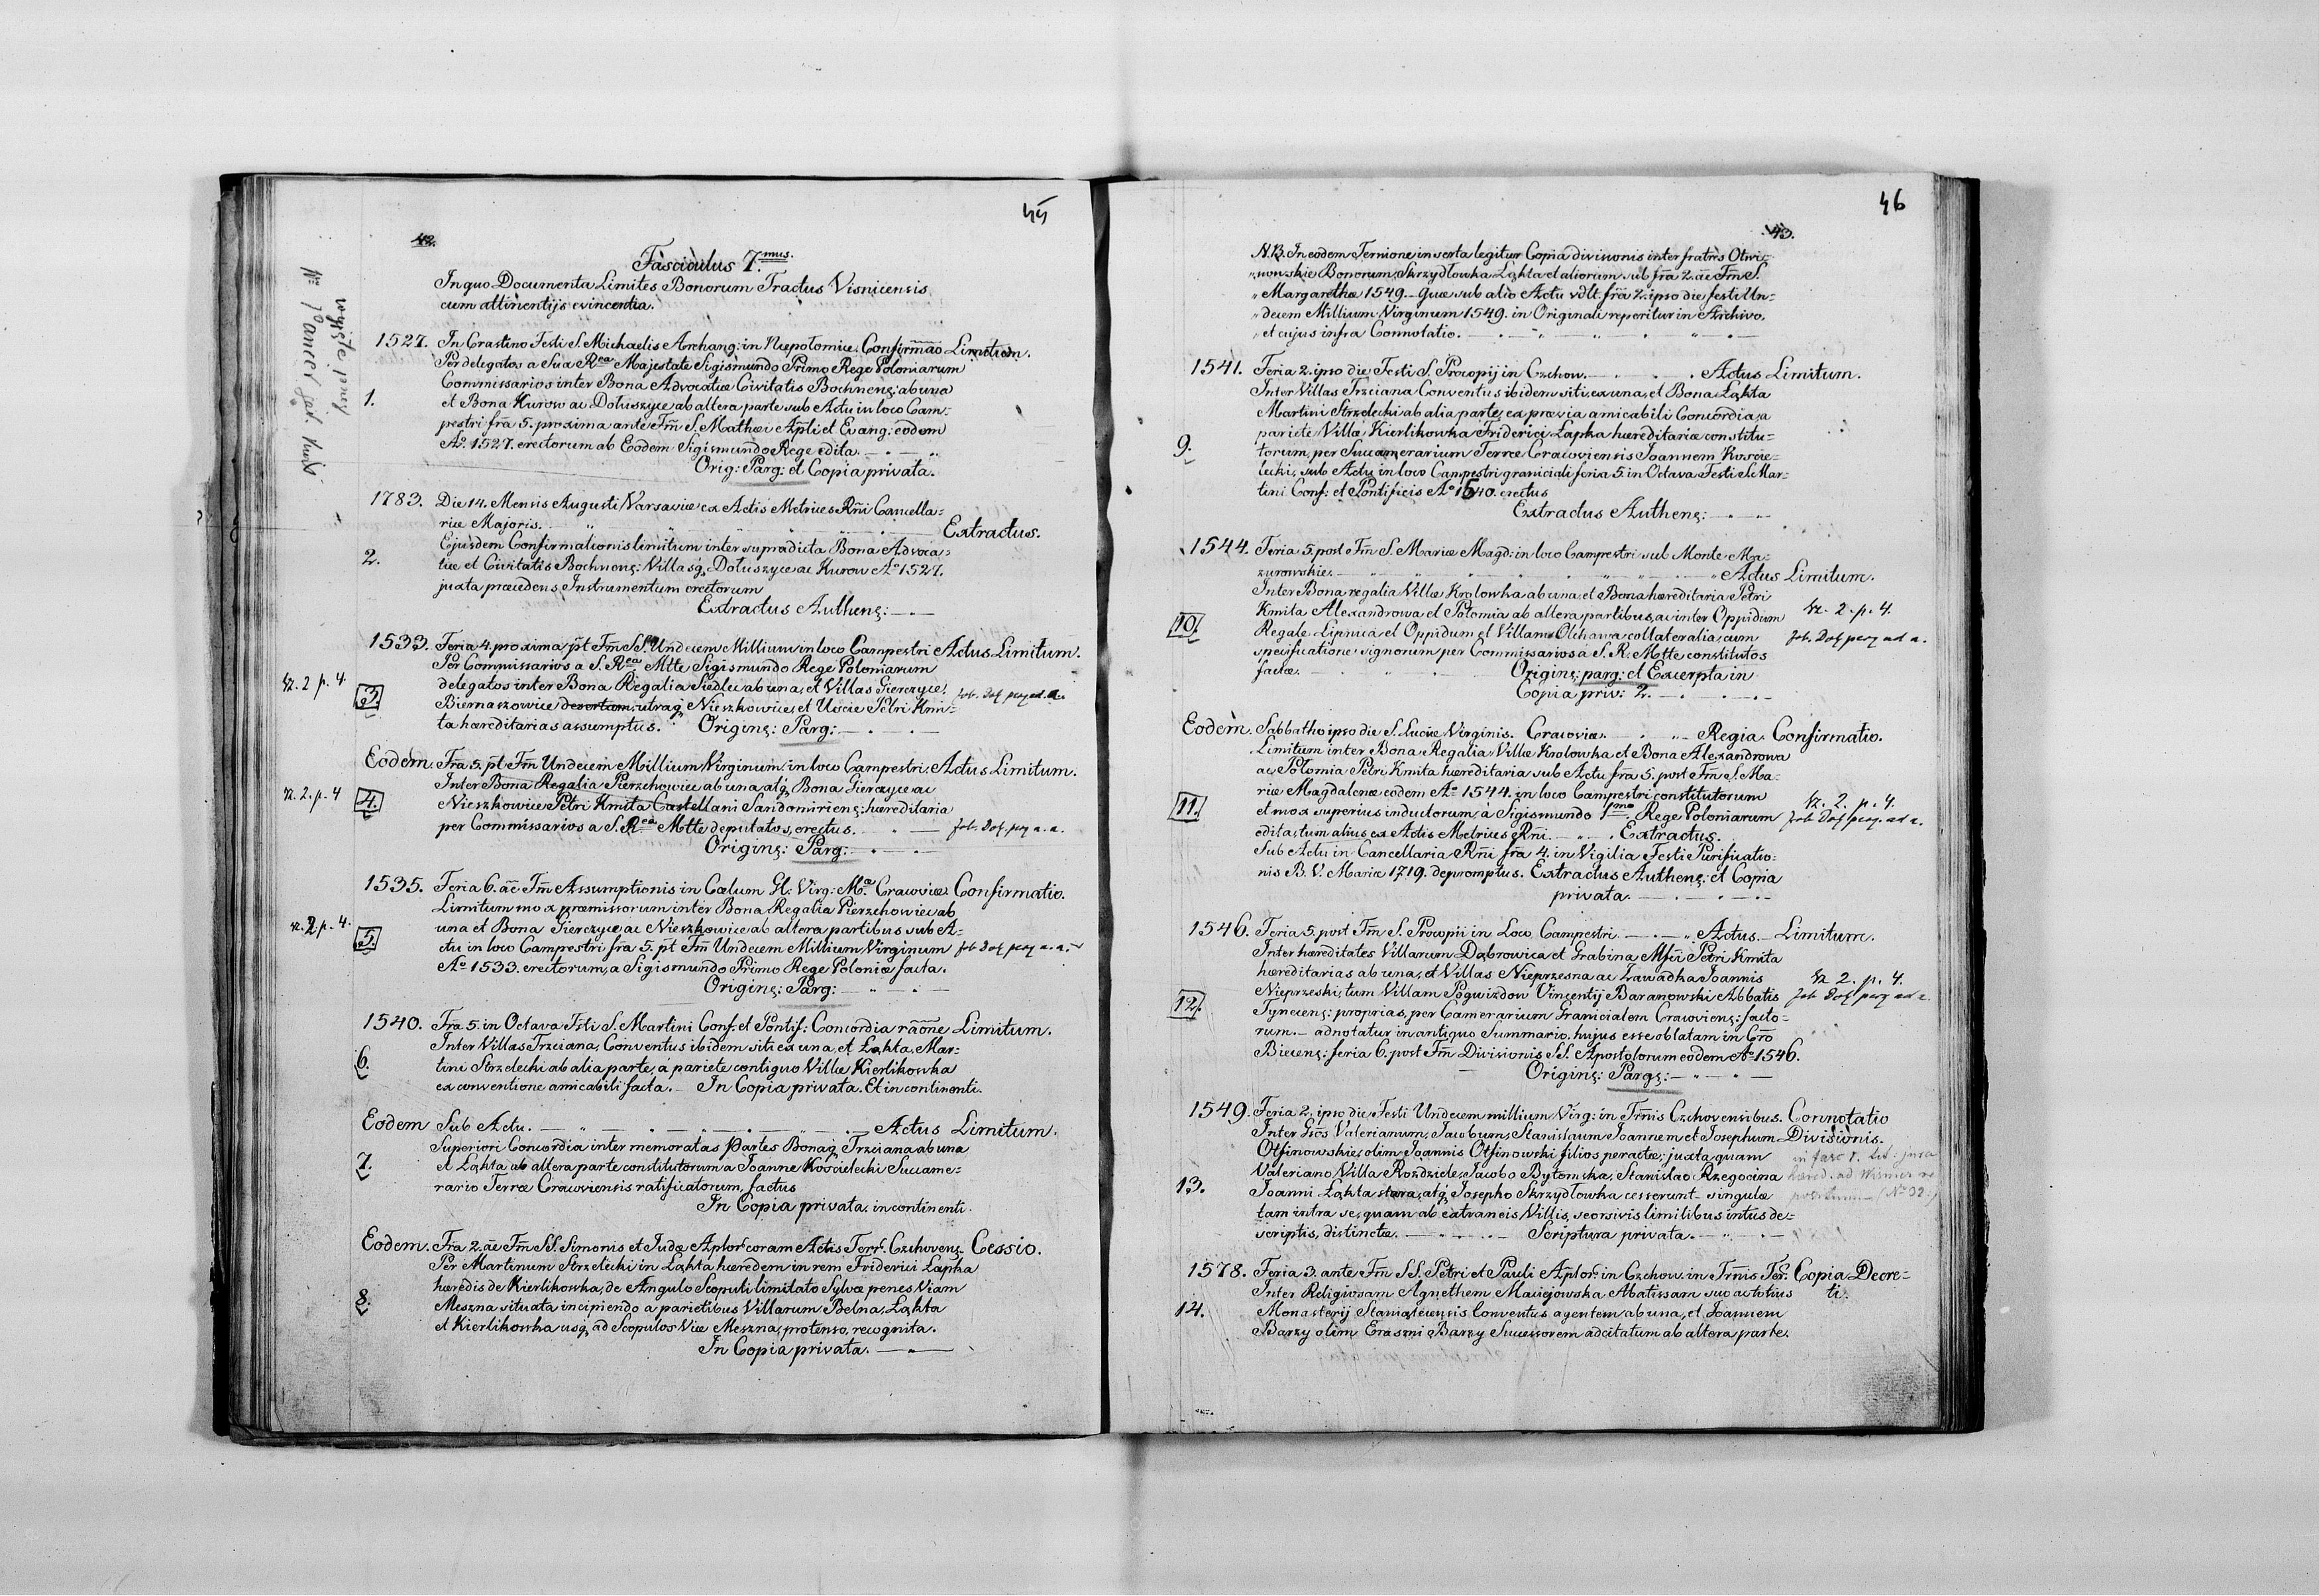 45
42.
Fasciculus 7.mus.
In quo Documenta Limites Bonorum Tractus Visnicensis
cum attinentijs evincentia.
1527. In Crastino Festi S. Michaelis Archang: in Niepołomice. Confirmão Limitum.
Per delegatos a Sua Rea Majestate Sigismundo Primo Rege Poloniarum
Commissarios inter Bona Advocatiæ Civitatis Bochnenς: ab una
1. et Bona Kurow ac Dołuszyce ab altera parte sub Actu in loco Cam-
pestri fra 5. proxima ante Fm̃ S. Mathæi Apli et Evang: eodem
Ao. 1527. erectorum ab Eodem Sigismundo Rege edita.
Orig: Parg: et Copia privata.
1783. Die 14. Mensis Augusti Varsaviæ ex Actis Metrices Rñi Cancella=
riæ Majoris. Extractus.
Ejusdem Confirmationis limitum inter supradicta Bona Advoca=
2. tiæ et Civitatis Bochnens: Villasq, Dołuszyce ac Kurow Ao 1527.
juxta præcedens Instrumentum erectorum
Extractus Authenς:
1533. Feria 4. proxima p̃t Fm̃ SS. Undecem Millium in loco Campestri Actus Limitum.
Per Commissarios a S. Rea Mtte Sigismundo Rege Poloniarum
sz. 2 p. 4. delegatos inter Bona Regalia Siedlec ab una, et Villas Gierczyce,
3. Biernaszowice desertam, utraq, Nieszkowice, et Uście Petri Kmi=
ta hæreditarias assumptus. Originς: Parg:
Eodem. Fra 5. p̃t Fm̃ Undecem Millium Virginum in loco Campestri, Actus Limitum.
Inter Bona Regalia Pierzchowiec ab una, atq, Bona Gierczyce ac
sz. 2. p. 4 4. Nieszkowice Petri Kmita Castellani Sandomiriens: hæreditaria
per Commissarios a S. Rea Mtte deputatos, erectus.
Originς: Parg:
1535. Feria 6. ãe Fm̃ Assumptionis in Cœlum Gl: Virg: Ma. Cracoviæ. Confirmatio.
Limitum mox præmissorum inter Bona Regalia Pierzchowiec ab
sz. 2. p. 4. una et Bona Gierczyce ac Nieszkowice ab altera partibus sub A-
5. ctu in loco Campestri fra 5. p̃t Fm̃ Undecem Millium Virginum
Ao 1533. erectorum, a Sigismundo Primo Rege Poloniæ facta.
Originς: Parg:
1540. Fra 5. in Octava Fsti S. Martini Conf: et Pontif: Concordia rãone Limitum.
Inter Villas Trzciana, Conventus ibidem siti ex una, et Łąkta, Mar=
6. tini Strzelecki ab alia parte, a pariete contiguo Villæ Kierlikowka
ex conventione amicabili facta. In Copia privata. Et in continenti.
Eodem Sub Actu. Actus Limitum.
Superiori Concordia inter memoratas Partes Bonaq, Trzciana ab una
7. et Łąkta ab altera parte constitutorum a Joanne Kościelecki Succame-
rario Terræ Cracoviensis ratificatorum, factus
In Copia privata. in continenti.
Eodem. Fra 2. ãe Fm̃ SS. Simonis et Judæ Aplor. coram Actis Terr. Czchovens. Cessio.
Per Martinum Strzelecki in Łąkta hæredem in rem Friderici Łapka
hæredis de Kierlikowka, de Angulo Scopuli limitato Sylvæ penes Viam
8. Meszna situata incipiendo a parietibus Villarum Bełna, Łąkta
et Kierlikowka usq, ad Scopulos Viæ Meszna, protenso, recognita.
In Copia privata.
46
43.
N.B. In eodem Ternione inserta legitur Copia divisionis inter fratres Otwi-
nowskie Bonorum, Skrzydłowka Łąkta et aliorum sub fra 2. ãe Fm̃ S.
Margarethæ 1549. Quæ sub alio Actu vdlt. fra 2. ipso die festi Un=
decem Millium Virginum 1549. in Originali reperitur in Archivo,
et cujus infra Connotatio.
1541. Feria 2. ipso die Festi S. Procopij in Czchow. Actus Limitum.
Inter Villas Trzciana Conventus ibidem siti, ex una, et Bona Łąkta
Martini Strzelecki ab alia parte, ex prævia amicabili Concordia, a
pariete Villæ Kierlikowka Friderici Łapka hæreditariæ constitu=
9. torum, per Succamerarium Terræ Cracoviensis Joannem Koscie=
lecki, sub Actu in loco Campestri graniciali feria 5. in Octava Festi S. Mar=
tini Conf: et Pontificis Ao 1540. erectus
Extractus Authenς:
1544. Feria 5. post Fm̃ S. Mariæ Magd: in loco Campestri sub Monte Ma=
zurowskie. Actus Limitum.
Inter Bona regalia Villæ Krolowka ab una, et Bona hæreditaria Petri
Kmita Alexandrowa et Połomia ab altera partibus, ac inter Oppidum sz. 2. p. 4.
10. Regale Lipnica et Oppidum et Villam Olchawa collateralia, cum
specificatione signorum per Commissarios a S. R. Mtte constitutos
factæ. Originς: parg: et Excerpta in
Copia priv: 2.
Eodem. Sabbatho ipso die S. Luciæ Virginis. Cracoviæ. Regia Confirmatio.
Limitum inter Bona Regalia Villæ Krolowka et Bona Alexandrowa
ac Połomia Petri Kmita hæreditaria sub Actu fra 5. post Fm̃ S. Ma-
riæ Magdalenæ eodem Ao 1544. in loco Campestri constitutorum
11. et mox superius inductorum, a Sigismundo 1mo Rege Poloniarum sz. 2. p. 4.
edita, tum alius ex Actis Metrices Rñi. Extractus.
Sub Actu in Cancellaria Rñi fra 4. in Vigilia Festi Purificatio=
nis B. V. Maria 1719. depromptus. Extractus Authenς: et Copia
privata.
1546. Feria 5. post Fm̃ S. Procopii in Loco Campestri. Actus Limitum.
Inter hæreditates Villarum Dąbrowica et Grabina Mfci Petri Kmita
hæreditarias ab una, et Villas Nieprzesna ac Zawadka Joannis sz 2. p. 4.
Nieprzeski, tum Villam Pogwizdow Vincentij Baranowski Abbatis
12. Tynecenς: proprias, per Camerarium Granicialem Cracovienς: facto=
rum. adnotatur in antiquo Summario, hujus esse oblatam in Cro
Biecenς: feria 6. post Fm̃ Divisionis SS. Apostolorum eodem Ao 1546.
Originς: Pargς:
1549. Feria 2. ipso die Festi Undecem millium Virg: in Trm̃is Czchovensibus. Connotatio
Inter Gsõs Valerianum, Jacobum, Stanislaum Joannem et Josephum Divisionis.
Otfinowskie, olim Joannis Otfinowski filios peractæ; juxta quam
Valeriano Villa Rozdziele, Jacobo Bytomska, Stanislao Rzegocina
13. Joanni Łąkta stara, atq, Josepho Skrzydłowka cesserunt singulæ
tam intra se, quam ab extraneis Villis, seorsivis limitibus intus de=
scriptis, distinctæ. Scriptura privata.
1578. Feria 3. ante Fm̃ SS. Petri et Pauli Aplor. in Czchow. in Trm̃is Ter. Copia Decre=
Inter Religiosam Agnethem Maciejowska Abatissam suo ac totius ti.
14. Monasterij Staniątecensis Conventus agentem ab una, et Joannem
Barzy olim Erasmi Barzy Successorem adcitatum ab altera parte.